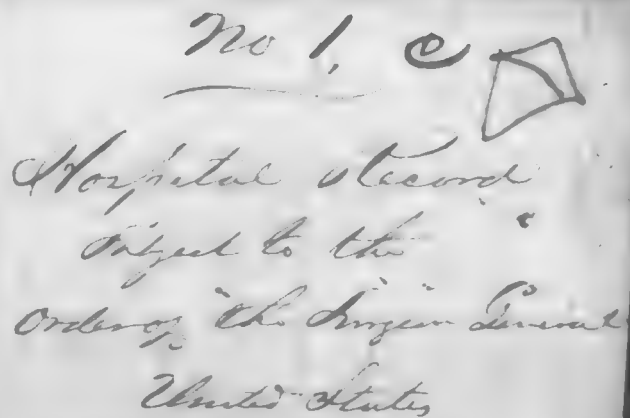 No 1, C
Hospital Record
Subject to the
Order of the Surgeon General
United States